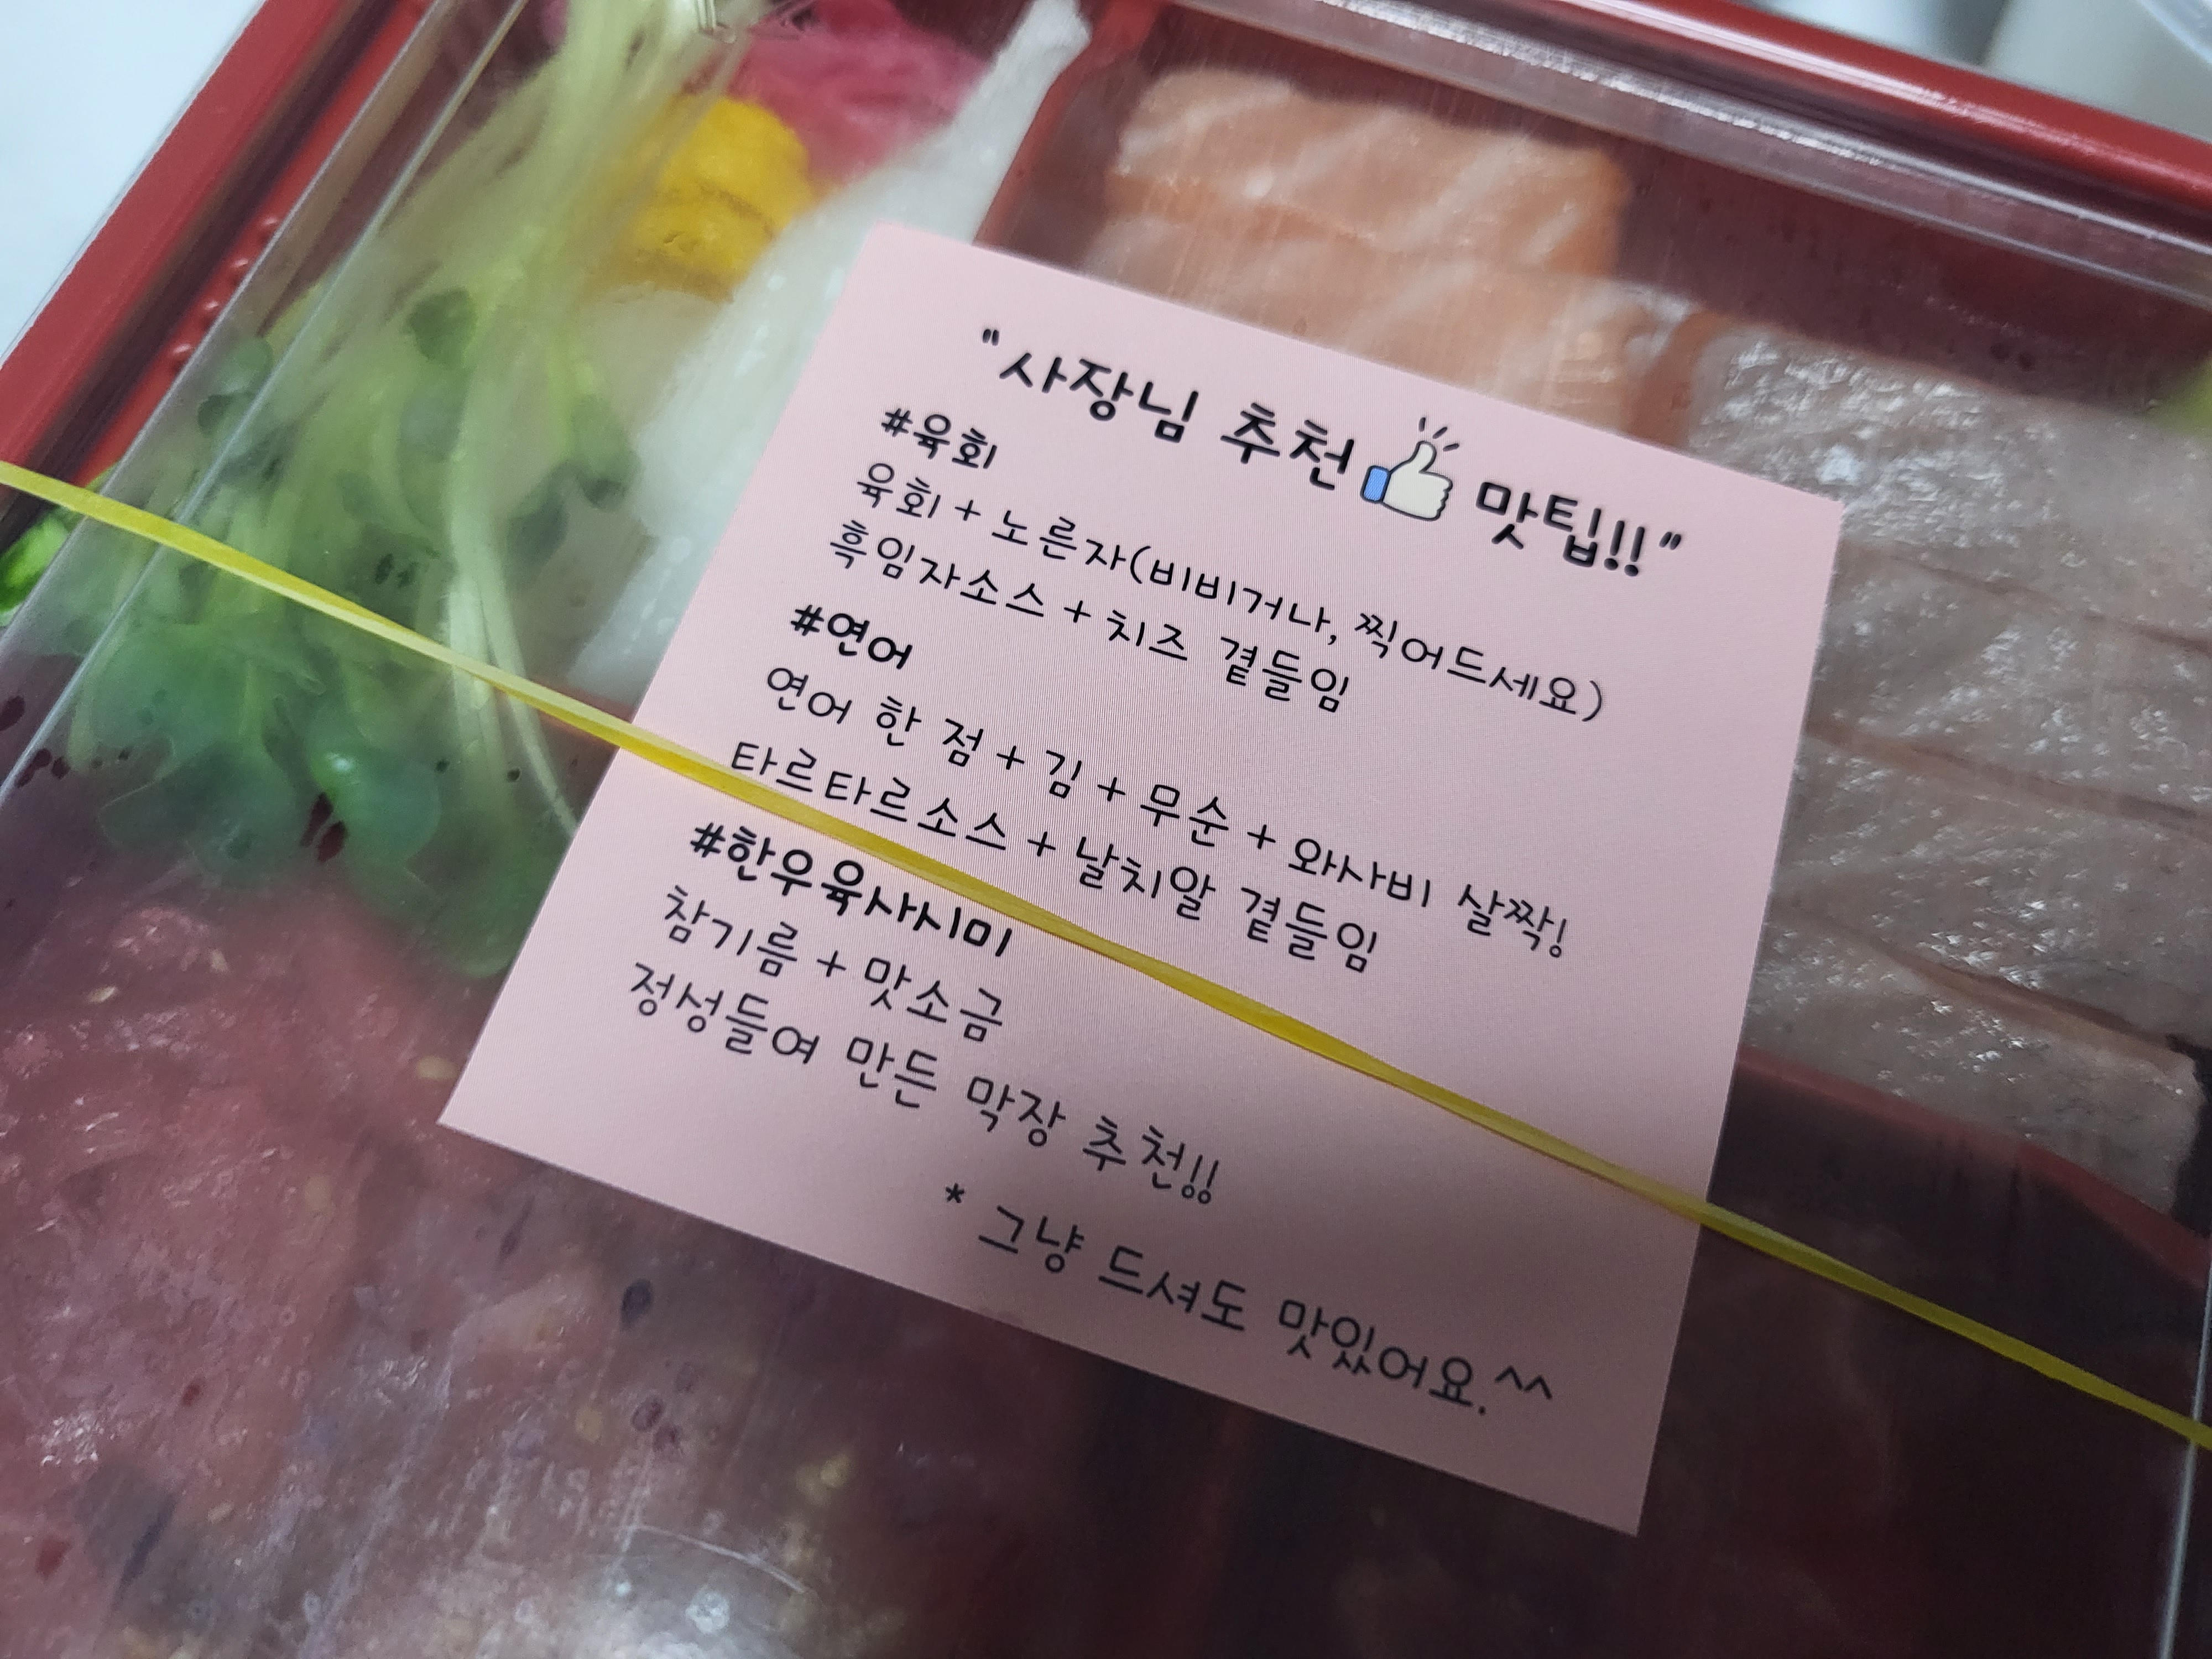 "사장님 추천 맛팁!!"
#육회
육회 + 노른자(비비거나, 찍어드세요)
흑임자소스 + 치즈 곁들임
#연어
연어 한 점 + 김 + 무순 + 와사비 살짝!
타르타르소스 + 날치알 곁들임
#한우육사시미
참기름 + 맛소금
정성들여 만든 막장 추천!!
* 그냥 드셔도 맛있어요.^^